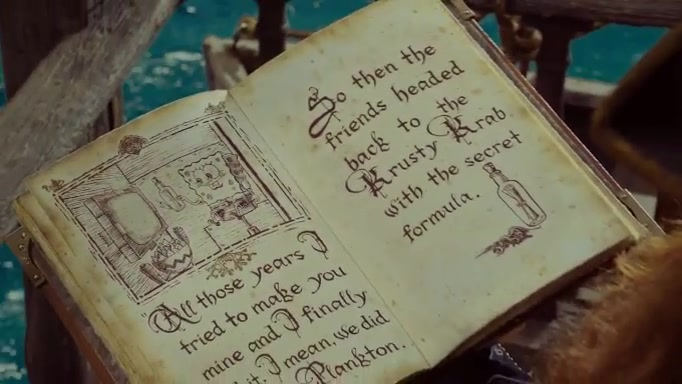 "All those years I
tried to make you
mine and I finally
it. I mean, we did
Plankton.
So then the
friends headed
back to the
Krusty Krab
with the secret
formula.